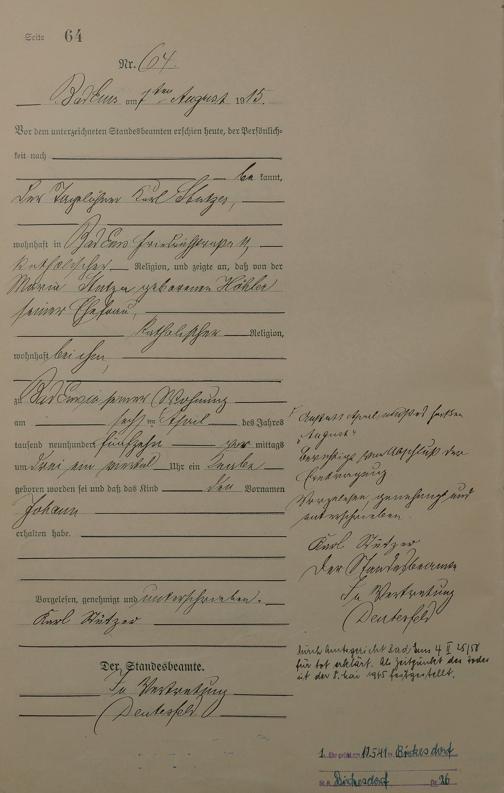 Seite 64
Nr. 64.
Bad Ems am 7ten August 1915.
Vor dem unterzeichneten Standesbeamten erschien heute, der Persönlich-
keit nach
be kannt,
der Tagelöhner Karl
wohnhaft in Bad Ems
katholischer Religion, und zeigte an, daß von der
Maria geborenen Köhler
seiner Ehefrau,
katholischer Religion,
wohnhaft bei ihm,
zu Bad Ems in seiner Wohnung
am sechs ten April des Jahres
tausend neunhundert fünfzehn vor mittags
um drei ein viertel Uhr ein Knabe
geboren worden sei und daß das Kind den Vornamen
Johann
erhalten habe.
Vorgelesen, genehmigt und unterschrieben.
Karl Stutzer
Der Standesbeamte.
In Vertretung
Deutesfeld
Anstatt April muß es heißen
August
Berichtigt vor Abschluß der
Eintragung
Vorgelesen, genehmigt und
unterschrieben.
Karl Stutzer
Der Standesbeamte
In Vertretung
Deutesfeld
durch Amtsgericht Bad Ems 4 II 25/58
für tot erklärt. Als Zeitpunkt des Todes
ist der 8. Mai 1945 festgestellt.
1. 17.5.41 Birkesdorf
Birkesdorf Nr. 26